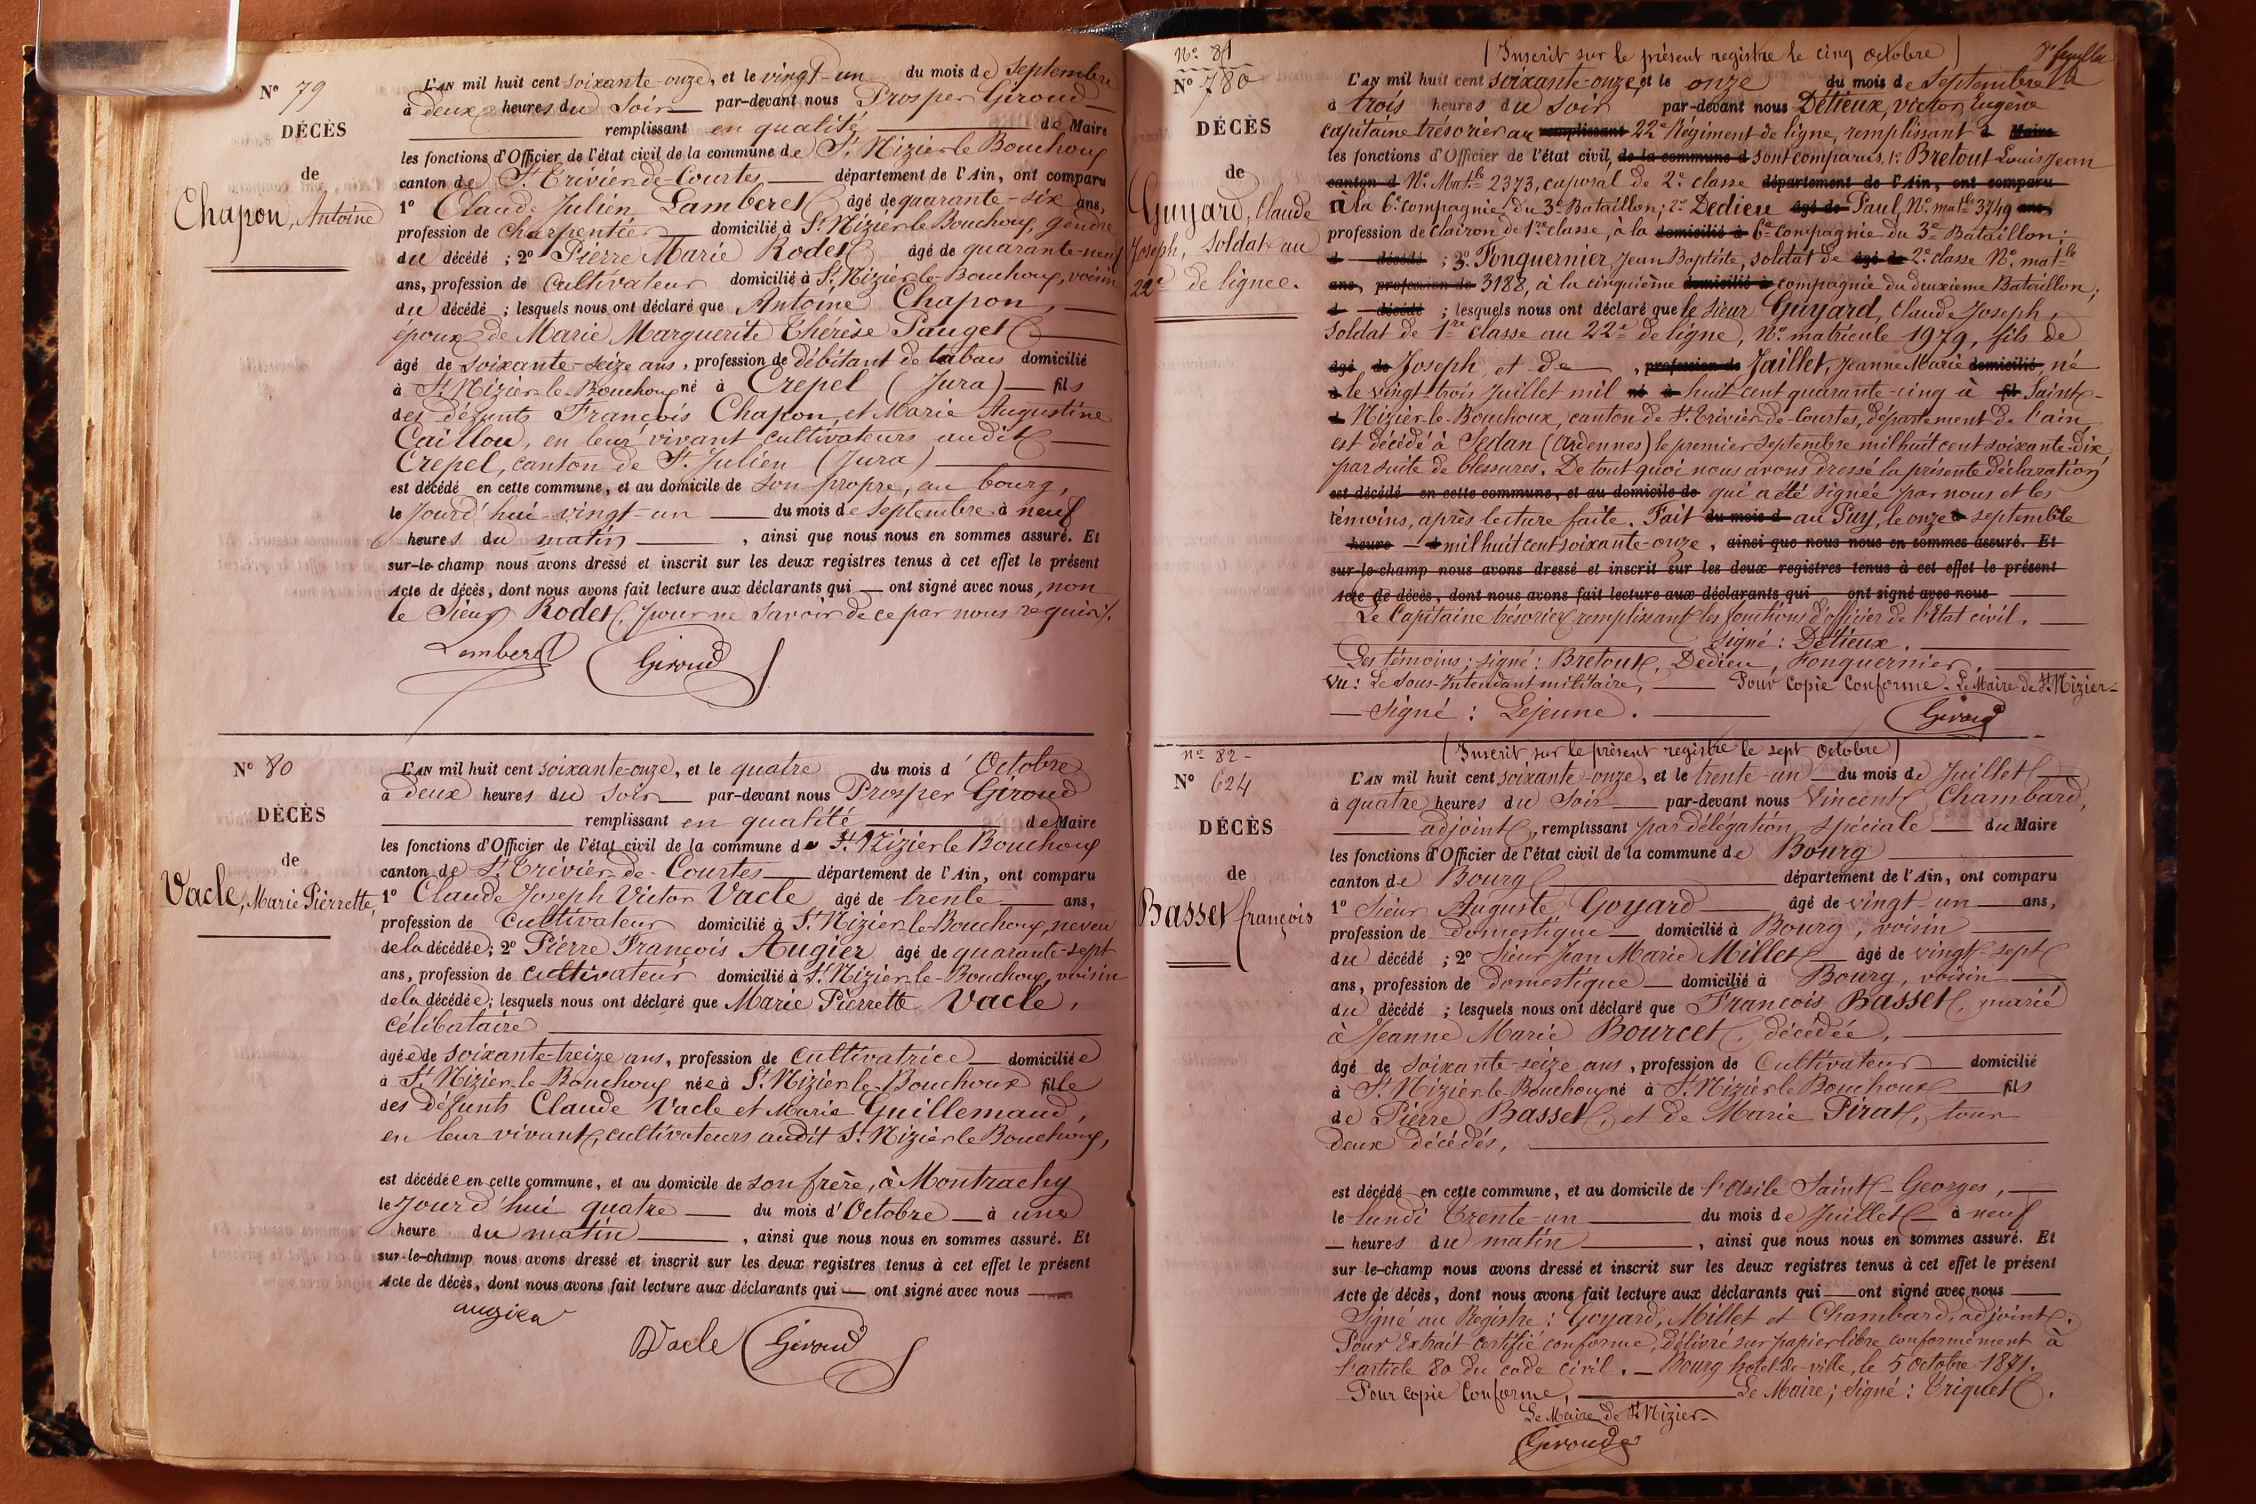 Nº 79
DÉCÈS
de
Chapon, Antoine
L'AN mil huit cent soixante-onze, et le vingt-un du mois de Septembre
à deux heures du Soir par-devant nous Prosper Giroud
remplissant en qualité de Maire
les fonctions d'Officier de l'état civil de la commune de St Nizier le Bouchoux
canton de St Trivier-de-Courtes département de l'Ain, ont comparu
1º Claude Julien Lamberet âgé de quarante-six ans,
profession de Charpentier domicilié à St Nizier le Bouchoux, gendre
du décédé ; 2º Pierre Marie Rodet âgé de quarante-neuf
ans, profession de Cultivateur domicilié à St Nizier-le-Bouchoux, voisin
du décédé ; lesquels nous ont déclaré que Antoine Chapon,
époux de Marie Marguerite Thérèse Pauget
âgé de soixante-seize ans, profession de débitant de tabacs domicilié
à St Nizier-le-Bouchoux né à Crepel (Jura) fils
des défunts François Chapon, et Marie Augustine
Caillou, en leur vivant cultivateurs audit
Crepel, canton de St Julien (Jura)
est décédé en cette commune, et au domicile de son propre, au bourg,
le Jourd'hui vingt-un du mois de Septembre à neuf
heures du matin, ainsi que nous nous en sommes assuré. Et
sur-le-champ nous avons dressé et inscrit sur les deux registres tenus à cet effet le présent
Acte de décès, dont nous avons fait lecture aux déclarants qui ont signé avec nous, non
le Sieur Rodet, pour ne savoir de ce par nous requis.
Lamberet Giroud
Nº 80
DÉCÈS
de
Vacle, Marie Pierrette,
L'AN mil huit cent soixante-onze, et le quatre du mois d'Octobre
à deux heures du Soir par-devant nous Prosper Giroud
remplissant en qualité de Maire
les fonctions d'Officier de l'état civil de la commune de St Nizier le Bouchoux
canton de St Trévier-de-Courtes département de l'Ain, ont comparu
1º Claude Joseph Victor Vacle âgé de trente ans,
profession de Cultivateur domicilié à St Nizier-le-Bouchoux, neveu
de la décédée ; 2º Pierre François Augier âgé de quarante-sept
ans, profession de Cultivateur domicilié à St Nizier-le-Bouchoux, voisin
de la décédée ; lesquels nous ont déclaré que Marie Pierrette Vacle,
célibataire
âgée de soixante-treize ans, profession de Cultivatrice domiciliée
à St Nizier-le-Bouchoux née à St Nizier-le-Bouchoux fille
des défunts Claude Vacle et Marie Guillemaud,
en leur vivant, cultivateurs audit St Nizier le Bouchoux,
est décédée en cette commune, et au domicile de son frère, à Montrachy
le Jourd'hui quatre du mois d'Octobre à une
heure du matin, ainsi que nous nous en sommes assuré. Et
sur-le-champ nous avons dressé et inscrit sur les deux registres tenus à cet effet le présent
Acte de décès, dont nous avons fait lecture aux déclarants qui ont signé avec nous
augier
Vacle Giroud
Nº 81
Nº 780
DÉCÈS
de
Guyard, Claude
Joseph, soldat au
22e de ligne.
(Inscrit sur le présent registre le cinq Octobre)
L'AN mil huit cent soixante-onze et le onze du mois de Septembre
à trois heures du Soir par-devant nous Détieux, victor Eugène
capitaine trésorier au remplissant 22e Régiment de ligne, remplissant Maire
les fonctions d'Officier de l'état civil, de la commune d sont comparus, 1º Bretout Louis Jean
canton d Nº Matle 2373, caporal de 2e classe département de l'Ain, ont comparu
à la 6e compagnie du 3e Bataillon ; 2º Dedieu âgé de Paul, Nº matle 3749 ans,
profession de clairon de 1re classe, à la domicilié à 6e compagnie du 3e Bataillon ;
d décédé ; 3º Fonquernier Jean Baptiste, soldat de âgé de 2e classe Nº matle
ans, profession de 3188, à la cinquième domicilié à compagnie du deuxième Bataillon ;
d décédé ; lesquels nous ont déclaré que le sieur Guyard, Claude Joseph,
soldat de 1re classe au 22e de ligne, Nº matricule 1979, fils de
âgé de Joseph, et de, profession de Jaillet, Jeanne Marie domicilié, né
à le vingt-trois Juillet mil né à huit cent quarante-cinq à fil Saint-
d Nizier-le-Bouchoux, canton de St Trivier-de-Courtes, département de l'ain,
est décédé à Sedan (Ardennes) le premier Septembre mil huit cent soixante-dix
par suite de blessures. De tout quoi nous avons dressé la présente déclaration
est décédé en cette commune, et au domicile de qui a été signée par nous et les
témoins, après lecture faite. Fait du mois d au Puy, le onze à septembre
heure d mil huit cent soixante-onze, ainsi que nous nous en sommes assuré. Et
sur-le-champ nous avons dressé et inscrit sur les deux registres tenus à cet effet le présent
Acte de décès, dont nous avons fait lecture aux déclarants qui ont signé avec nous
Le Capitaine trésorier remplissant les fonctions d'officier de l'Etat civil.
Signé : Détieux.
Les témoins ; signé : Bretout, Dedieu, Fonquernier.
Vu : Le Sous-Intendant militaire, Pour Copie Conforme. Le Maire de St Nizier
Signé : Lejeune. Giroud
nº 82
Nº 624
DÉCÈS
de
Basset françois
(Inscrit sur le présent registre le sept Octobre)
L'AN mil huit cent soixante-onze, et le trente-un du mois de Juillet
à quatre heures du Soir par-devant nous Vincent Chambard,
adjoint, remplissant par délégation spéciale du Maire
les fonctions d'Officier de l'état civil de la commune de Bourg
canton de Bourg département de l'Ain, ont comparu
1º Sieur Auguste Goyard âgé de vingt-un ans,
profession de domestique domicilié à Bourg, voisin
du décédé ; 2º Sieur Jean Marie Millet âgé de vingt-sept
ans, profession de domestique domicilié à Bourg, voisin
du décédé ; lesquels nous ont déclaré que François Basset, marié
à Jeanne Marie Bourcet, décédée,
âgé de soixante-seize ans, profession de Cultivateur domicilié
à St Nizier-le-Bouchoux né à St Nizier le Bouchoux fils
de Pierre Basset, et de Marie Pirat, tous
deux décédés,
est décédé en cette commune, et au domicile de l'Asile Saint-Georges,
le lundi trente-un du mois de Juillet à neuf
heures du matin, ainsi que nous nous en sommes assuré. Et
sur le-champ nous avons dressé et inscrit sur les deux registres tenus à cet effet le présent
Acte de décès, dont nous avons fait lecture aux déclarants qui ont signé avec nous
Signé au Registre : Goyard, Millet et Chambard, adjoint.
Pour Extrait certifié conforme, délivré sur papier libre conformément à
l'article 80 du code civil. Bourg hotel-de-ville, le 5 octobre 1871.
Pour copie conforme, Le Maire ; signé : Triquet.
Le Maire de St Nizier
Giroud